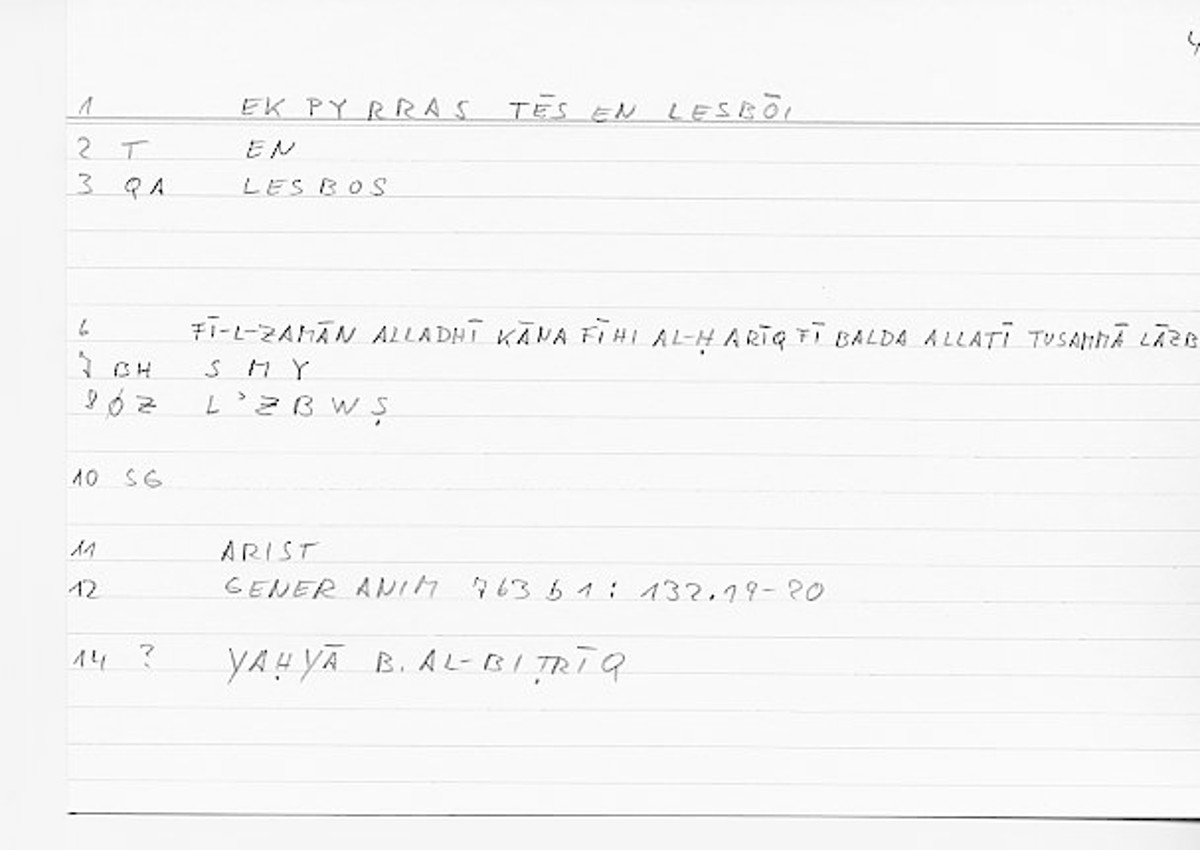 1 EK PYRRAS TĒS EN LESBŌI
2 T EN
3 QA LESBOS
6 FĪ-L-ZAMĀN ALLADHĪ KĀNA FĪHI AL-ḤARĪQ FĪ BALDA ALLATĪ TUSAMMĀ LĀZB
7 BH S M Y
8 ØZ L ʾ Z B W Ṣ
10 SG
11 ARIST
12 GENER ANIM 763 b 1 : 132.19-20
14 ? YAḤYĀ B. AL-BIṬRĪQ